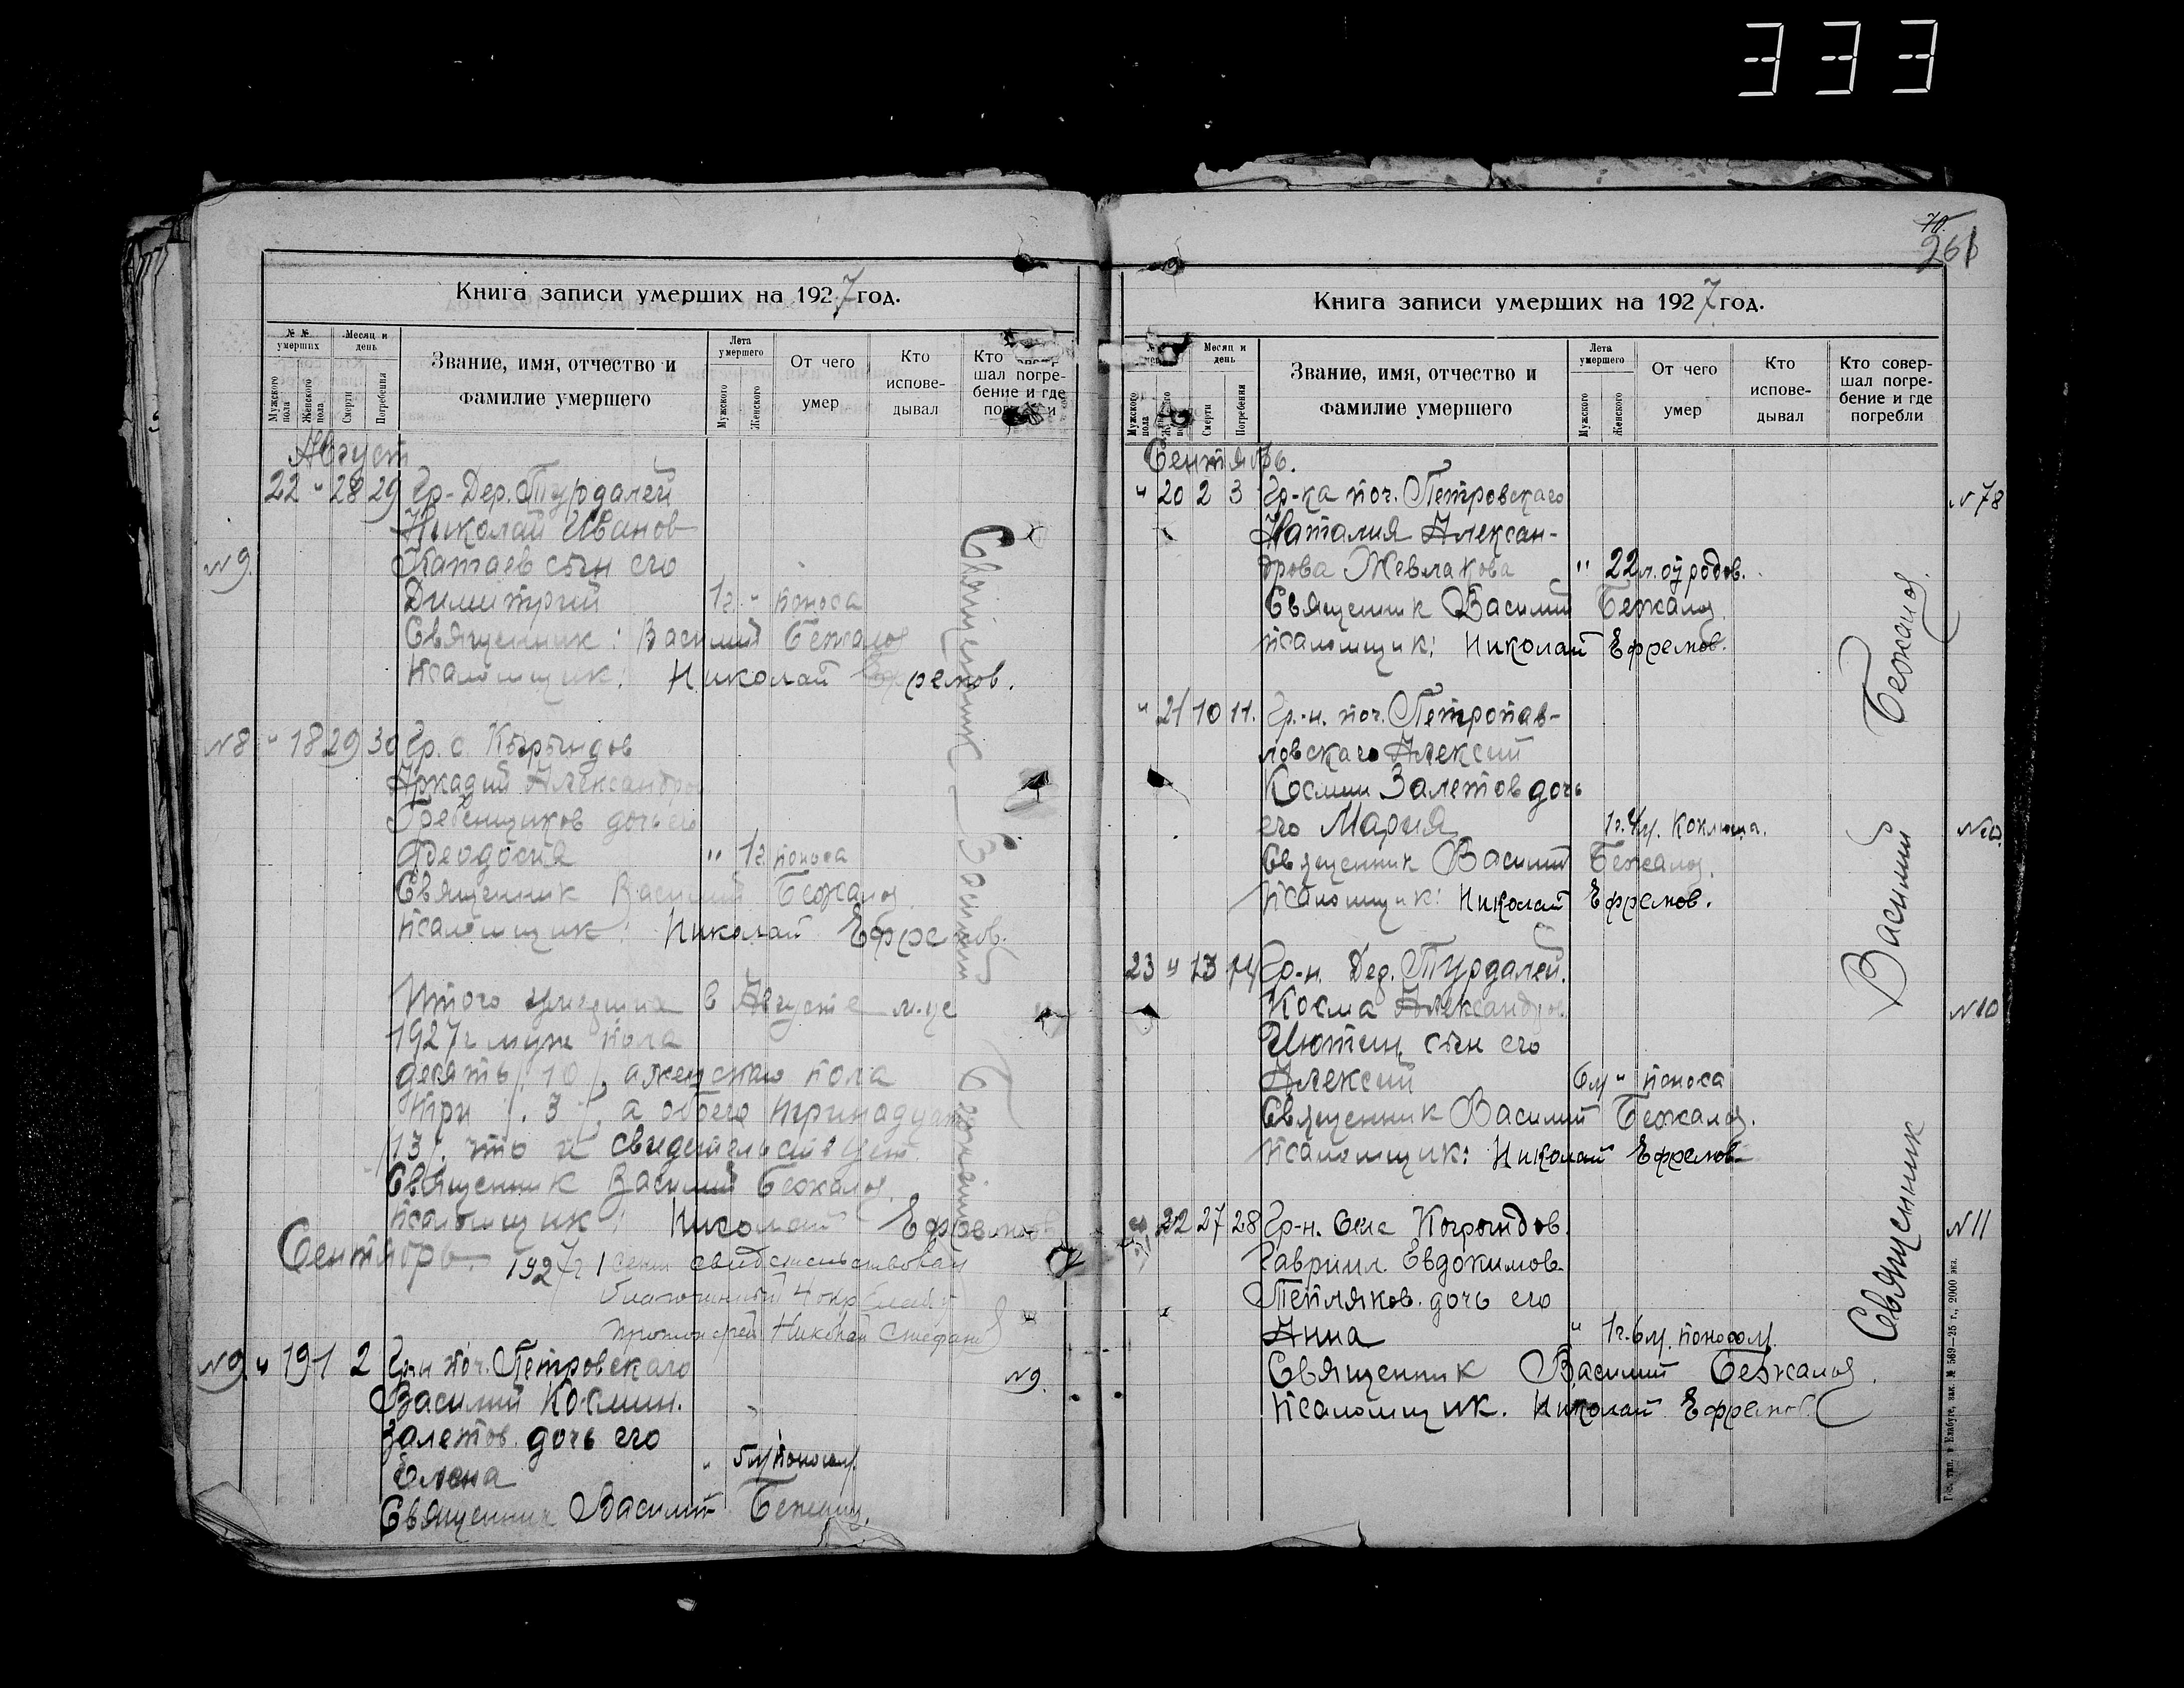 333
70.
261
Книга записи умерших на 1927 год.
№ № умерших
Мужского пола
Женского пола
Месяц и день
Смерти
Погребения
Звание, имя, отчество и фамилие умершего
Лета умершего
Мужского
Женского
От чего умер
Кто исповедывал
Кто шал погребение и где
Август
22 " 28 29 Гр-Дер. Турдалей
Николай Иванов
№ 9. Патаев сын его
Димитрий 1г. " поноса
Священник: Василий Бежалов
Псаломщик: Николай Ефремов.
№ 8 " 18 29 30 Гр. с. Кырындов
Аркадий Александров
Гребенщиков дочь его
Феодосия " 1г. поноса
Священник Василий Бежалов.
Псаломщик: Николай Ефремов.
Итого умерших в Августе м-це
1927 г муж пола
десять /. 10 /, а женскаго пола
три /. 3 /, а обоего тринадцать
/13/. что и свидетельствует
Священник Василий Бежалов.
Псаломщик: Николай Ефремов
Сентябрь. 1927 г 1 Сент свидетельствовал
благочинный 4 окр
протоиерей Николай Стефанов
№ 9. " 19 1 2 Гр-н поч. Петровскаго
Василий Космин.
Залетов. дочь его
Елена " 5 м поносом.
Священник Василий Бежалов.
Священник Василий Бежалов
№ 9.
Книга записи умерших на 1927 год.
Мужского пола
Месяц и день
Смерти
Погребения
Звание, имя, отчество и фамилие умершего
Лета умершего
Мужского
Женского
От чего умер
Кто исповедывал
Кто совершал погребение и где погребли
Сентябрь.
" 20 2 3 Гр-ка поч. Петровскаго № 78
Наталия Алексан-
дрова Жевлакова " 22 л. от родов.
Священник Василий Бежалов.
Псаломщик: Николай Ефремов.
" 21 10 11. Гр.-н. поч. Петропав-
ловскаго Алексий
Космин Залетов дочь
его Мария 1г. 4м. Коклюша.
Священник Василий Бежалов.
Псаломщик: Николай Ефремов.
23 " 13 14 Гр-н. Дер. Турдалей.
Косма Александров № 10
сын его
Алексий 6м " поноса
Священник Василий Бежалов.
Псаломщик: Николай Ефремов
22 27 28 Гр-н. Села Кырындов. № 11
Гавриил. Евдокимов.
Тепляков. дочь его
Анна " 1г. 6м. поносом
Священник Василий Бежалов.
Псаломщик. Николай Ефремов
Священник Василий Бежалов.
Гос. тип. в Елабуге, зак. № 569—25 г., 2000 экз.